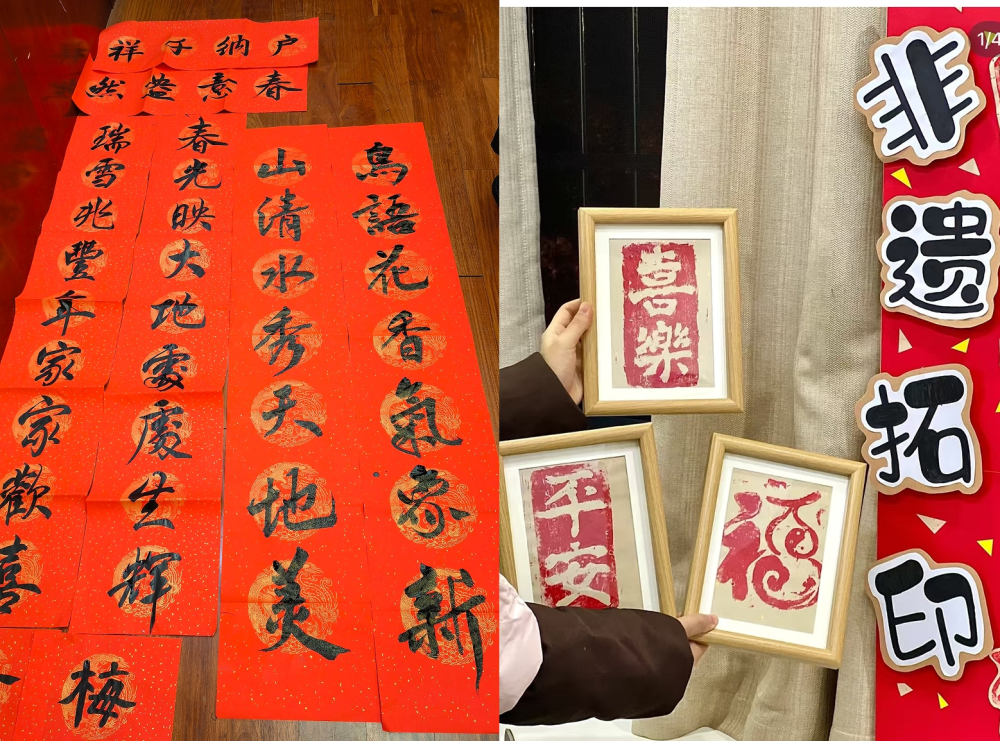 户纳千祥
春意盎然
鳥語花香氣象新
山清水秀天地美
春光映大地處處生辉
瑞雪兆豐年家家歡喜
梅
喜樂
平安
福
非遗拓印
1/4